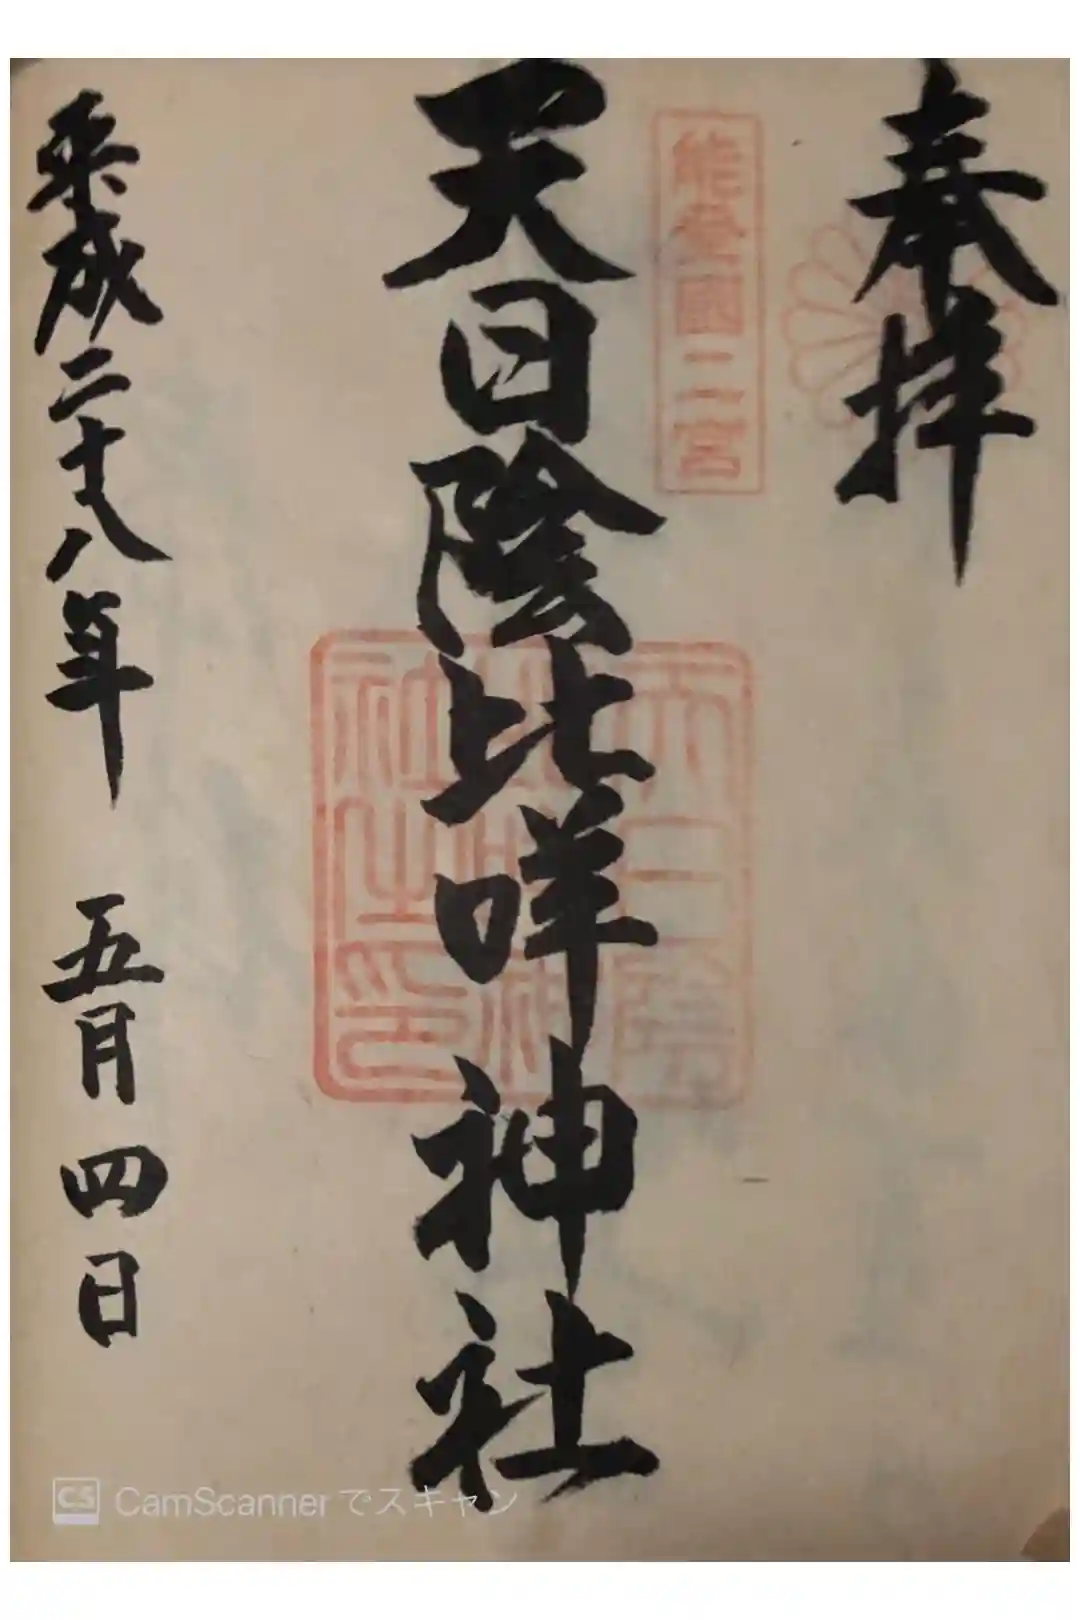 奉拝
能登國二宮
天日陰比咩神社
天日陰比咩神社之印
平成二十八年 五月四日
CS CamScannerでスキャン